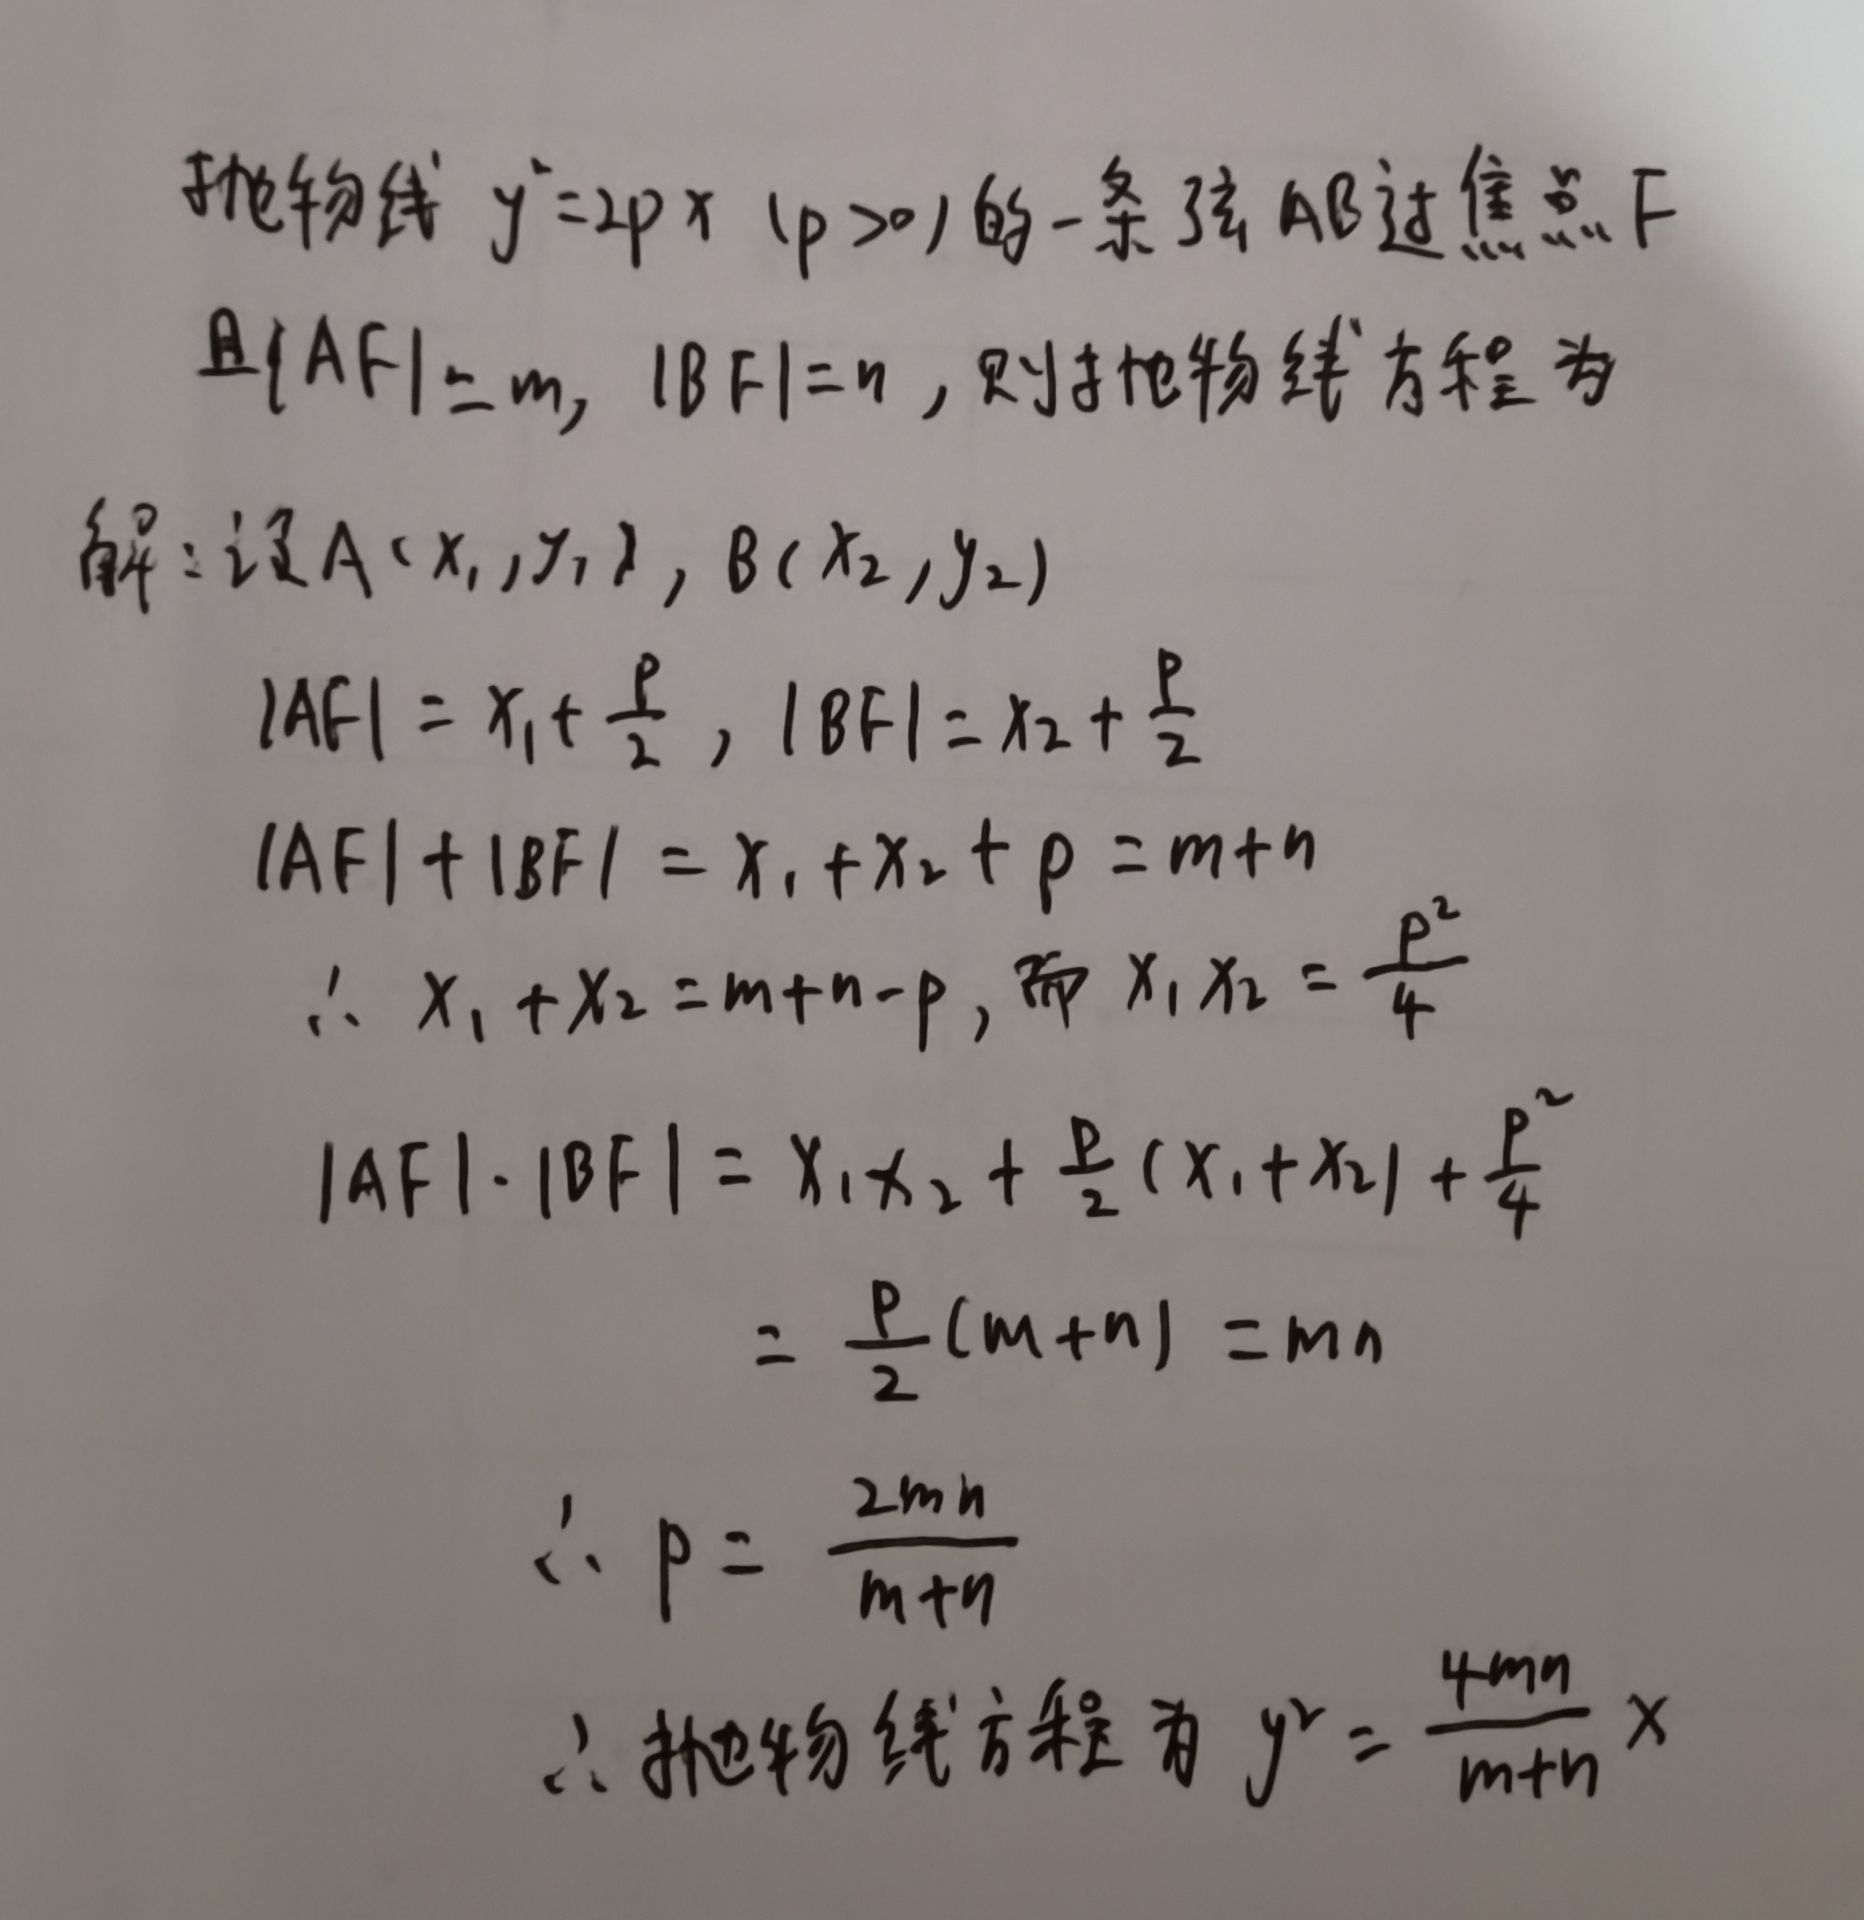 抛物线 y²=2px (p>0)的一条弦AB过焦点F
且|AF|=m, |BF|=n,则抛物线方程为
解:设A(x₁,y₁), B(x₂,y₂)
|AF| = x₁+p/2, |BF|=x₂+p/2
|AF|+|BF| = x₁+x₂+p=m+n
∴ x₁+x₂=m+n-p,而 x₁x₂=p²/4
|AF|·|BF|= x₁x₂+p/2(x₁+x₂)+p²/4
= p/2(m+n) =mn
∴ p= 2mn/m+n
∴抛物线方程为 y²=4mn/m+n x